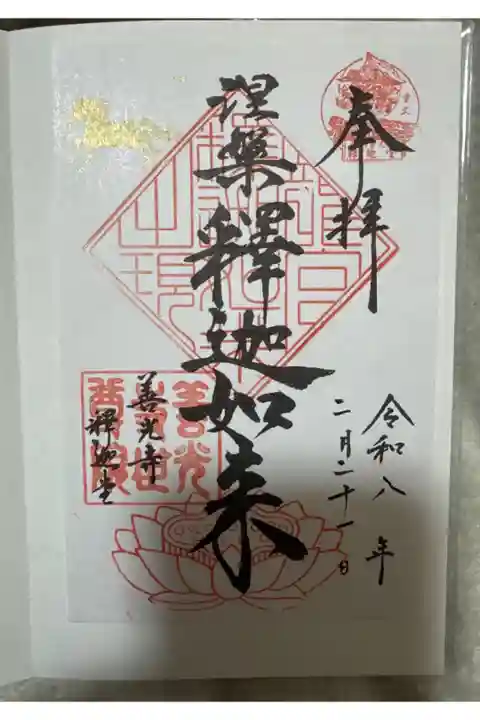 奉拝
涅槃釋迦如来
令和八年
二月二十一日
善光寺
釋迦堂